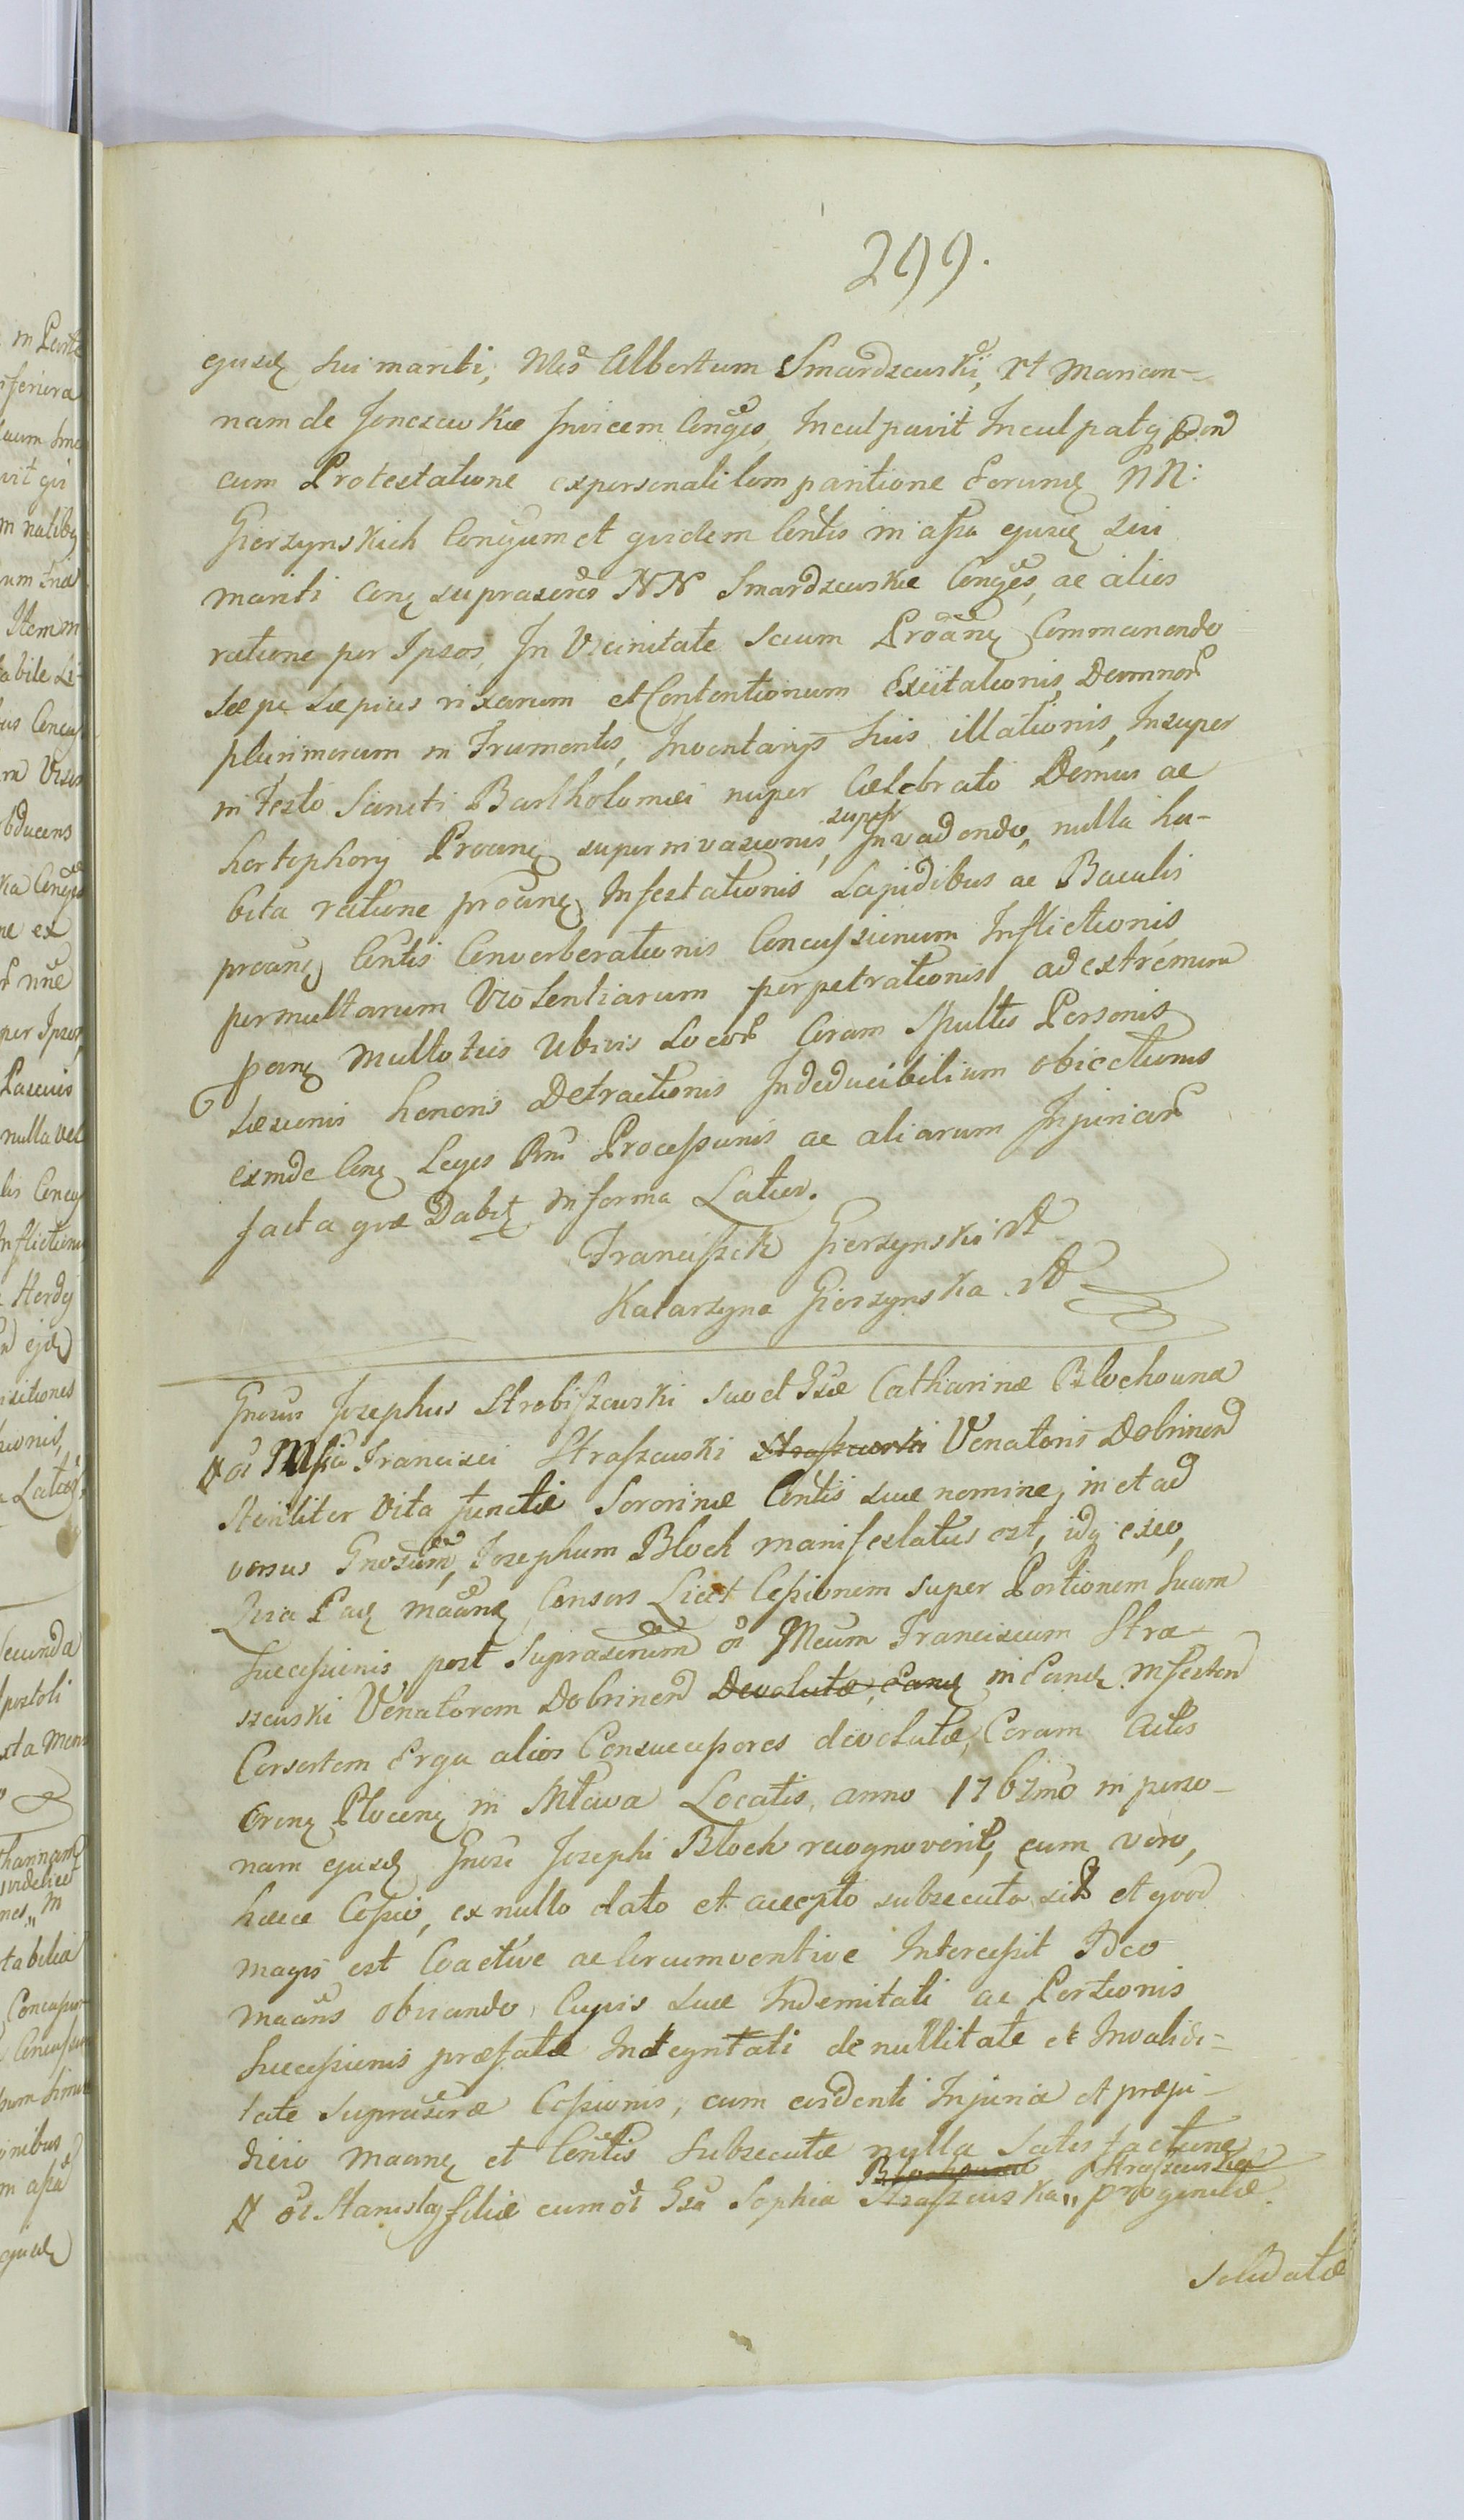 299.
ejusd sui mariti, Nlēs Albertum Smardzewski, et Marian-
nam de Jonczewskie Invicem Conġes, Inculpavit Inculpatq
cum Protestatione ex personali Comparitione Eorund NN:
Gierzynskich Conġum et quidem Contis in assa ejusd sui
mariti Con suprascros NN Smardzewskie Conġes, ac alios
ratione per Ipsos, In Vicinitate secum Proan Commanendo
sæpe sæpius rixarum et Contentionum Excitationis, Damnor
plurimorum in Frumentis, Inventarys suis illationis, Insuper
in Festo Sancti Bartholomæi nuper Cælebrato Domus ac
hortophory Proan super invasionis, super Invadendo, nulla ha-
bita ratione proan Infestationis Lapidibus ac Baculis
proan Contis Converberationis Concussionum Inflictionis
permultarum Violentiarum perpetrationis ad extremum
pan multoties Ubivis Locor Coram multis Personis
Læsionis honoris Detractionis Indeducibilium obiectionis
exinde Con Leges Rni Processûnis ac aliarum Injuriar
facta quæ Dabit in forma Latior.
Franciszek Gierzynski
Katarzyna Gierzynska
Gnosus Josephus Strobiszewski suo et Gsæ Catharinæ Blochowna
Francisci Straszewski Straszewski Venatoris Dobrinen
Steriliter Vita functæ Sororinæ Contis suæ nomine, in et ad
versus Gnosum, Josephum Bloch manifestatus est, idq exeo,
Quia Pad maan Consors Licet Cessionem super Portionem suam
Successionis post Suprascrum oī Mcum Franciscum Stra-
szewski Venatorem Dobrinen Devolutæ, Ean in Eand
Consortem Erga alios Consuccessores devolutæ, Coram Actis
Plocen in Mława Locatis anno 1767mo in perso-
nam ejusd Gnosi Josephi Bloch recognoverit, cum vero,
hæcce Cessio, ex nullo dato et accepto subsecuta sit et quod
magis est Coactive ac Circumventive Intercessit Ideo
maans obviando Cujus suæ Indemitati ac Portionis
Successionis præfatæ Integritati de nullitate et Invalidi-
tate Suprascræ Cessionis, cum evidenti Injuria et præju-
dicio maan et Contis Subsecutæ nulla Satisfactione
Blochowna Straszewska
oī Stanislaj filiæ cum oī Gsa Sophia Straszewska progenitæ
solidatæ